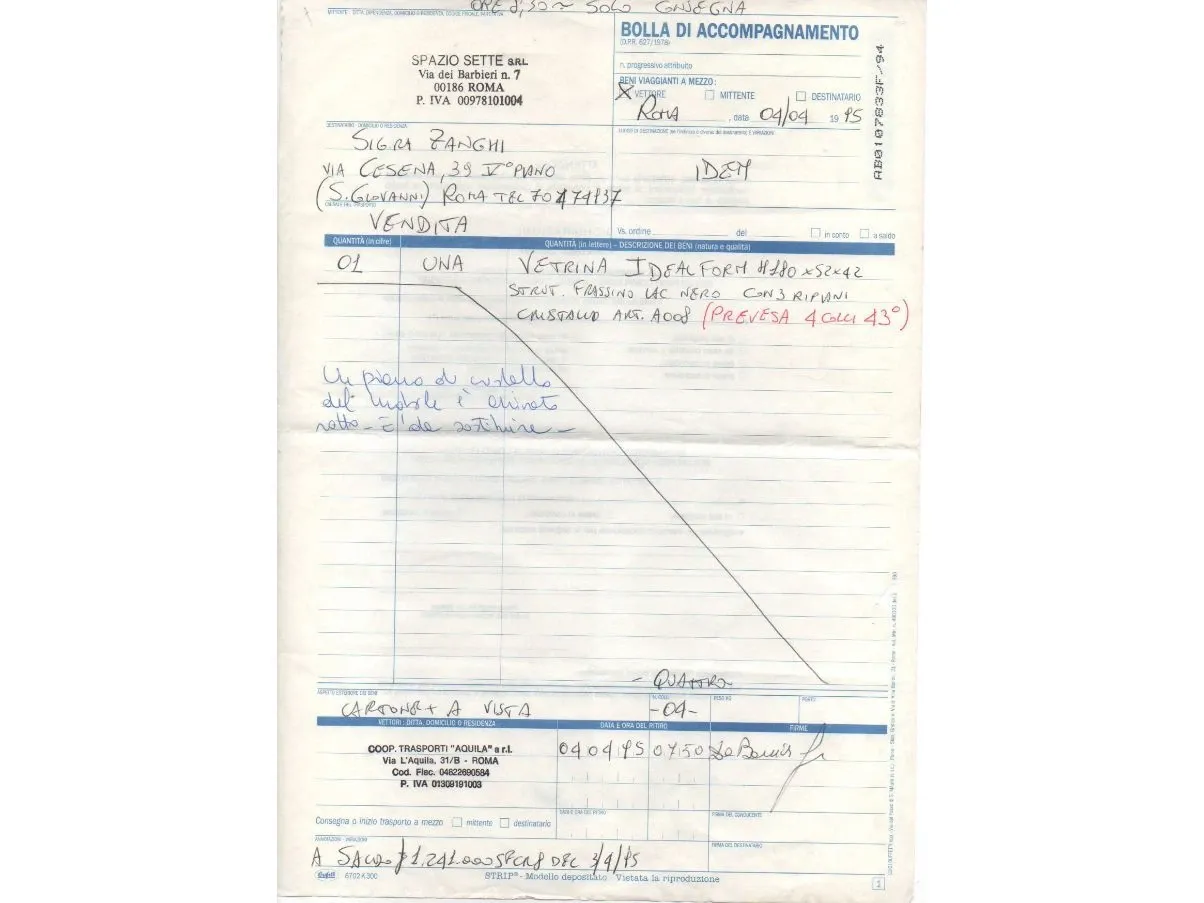 ORE 8,30 ~ SOLO CONSEGNA
MITTENTE - DITTA, DIPENDENZA, DOMICILIO O RESIDENZA, CODICE FISCALE, PARTITA IVA
BOLLA DI ACCOMPAGNAMENTO
(D.P.R. 627/1978)
SPAZIO SETTE S.R.L.
Via dei Barbieri n. 7
00186 ROMA
P. IVA 00978101004
n. progressivo attribuito
BENI VIAGGIANTI A MEZZO:
X VETTORE MITTENTE DESTINATARIO
ROMA , data 04/04 1995
AB0107833F/94
DESTINATARIO - DOMICILIO O RESIDENZA
SIG.RA ZANGHI
VIA CESENA, 39 V° PIANO
(S. GIOVANNI) ROMA TEL 70474137
LUOGO DI DESTINAZIONE
IDEM
CAUSALE DEL TRASPORTO
VENDITA
Vs. ordine del in conto a saldo
QUANTITÀ (in cifre) QUANTITÀ (in lettere) - DESCRIZIONE DEI BENI (natura e qualità)
01 UNA VETRINA IDEAL FORM H180 x 52 x 42
STRUT. FRASSINO LAC NERO CON 3 RIPIANI
CRISTALLO ART. A008 (PREVESA 4 COLLI 43°)
Un piano di cristallo
del mobile è arrivato
rotto - E' da sostituire -
- QUATTRO -
ASPETTO ESTERIORE DEI BENI N. COLLI PESO KG PORTO
CARTONE + A VISTA -04-
VETTORI: DITTA, DOMICILIO O RESIDENZA DATA E ORA DEL RITIRO FIRME
COOP. TRASPORTI "AQUILA" a r.l.
Via L'Aquila, 31/B - ROMA
Cod. Fisc. 04822690584
P. IVA 01309191003
04 04 95 07 50
DATA E ORA DEL RITIRO FIRMA DEL CONDUCENTE
Consegna o inizio trasporto a mezzo mittente destinatario
ANNOTAZIONI - VARIAZIONI FIRMA DEL DESTINATARIO
A SALDO £ 1.241.000 DEL 3/4/95
Buffetti 6702 K300 STRIP® - Modello depositato Vietata la riproduzione 1